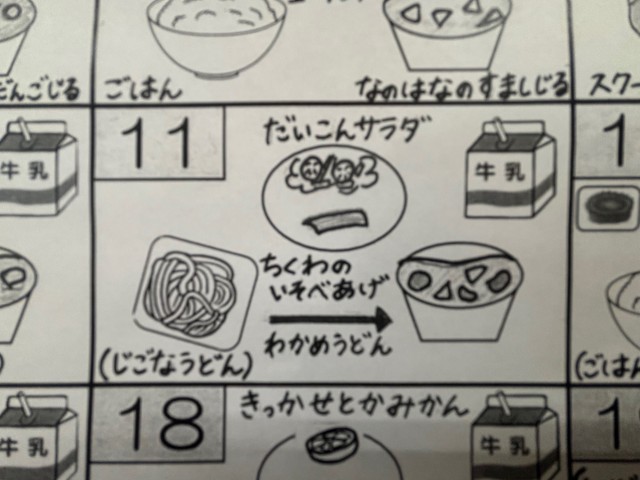 ごはん
なのはなのすましじる
牛乳
11
だいこんサラダ
牛乳
ちくわの
いそべあげ
わかめうどん
(じごなうどん)
牛乳
18
きっかせとかみかん
牛乳